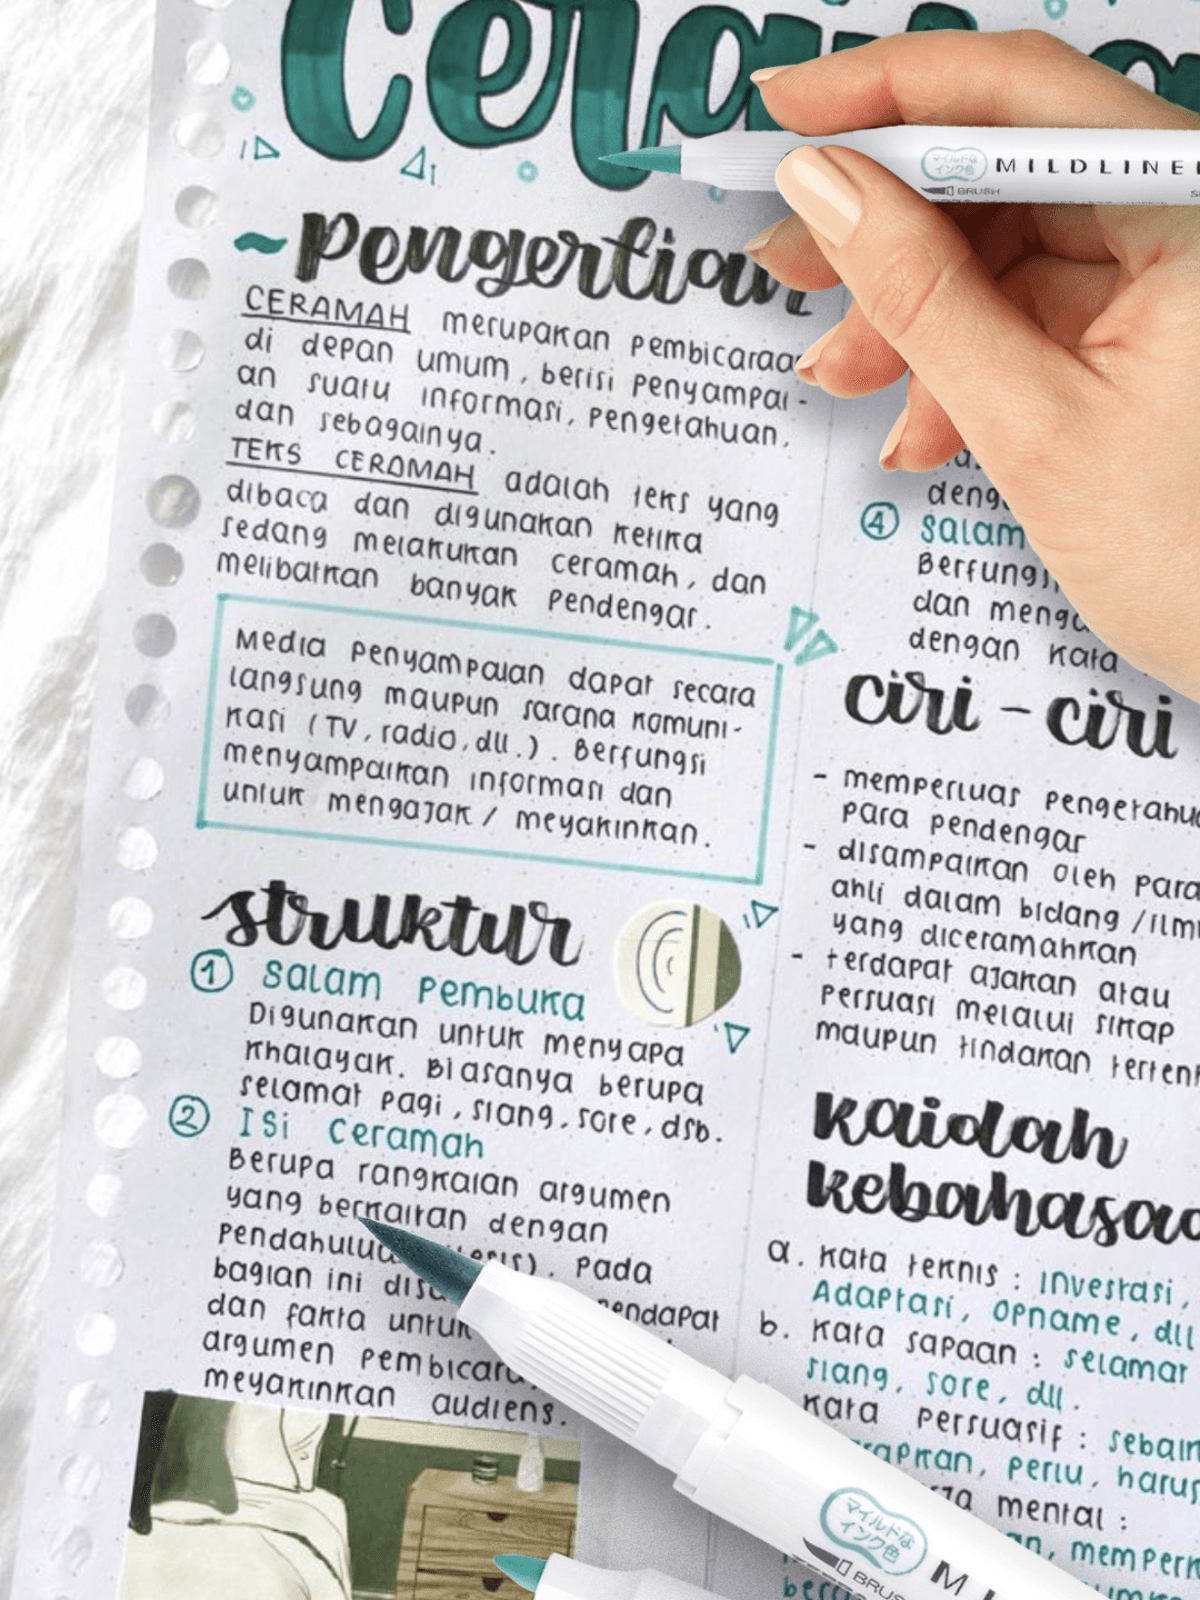 ~pengertian
CERAMAH merupakan pembicaraan
di depan umum, berisi penyampai-
an suatu informasi, pengetahuan,
dan sebagainya.
TEKS CERAMAH adalah teks yang
dibaca dan digunakan ketika
sedang melakukan ceramah, dan
melibatkan banyak pendengar.
Media penyampaian dapat secara
langsung maupun sarana komuni-
kasi (TV, radio, dll.). Berfungsi
menyampaikan informasi dan
untuk mengajak / meyakinkan.
struktur
① Salam Pembuka
Digunakan untuk menyapa
khalayak. Biasanya berupa
selamat pagi, siang, sore, dsb.
② Isi Ceramah
Berupa rangkaian argumen
yang berkaitan dengan
Pada
bagian ini
dan fakta untuk
argumen
meyakinkan audiens.
④ Salam
dan
dengan kata
ciri - ciri
- memperluas
para pendengar
- disampaikan oleh para
ahli dalam bidang /ilmu
yang diceramahkan
- terdapat ajakan atau
persuasi melalui sikap
maupun tindakan
kaidah
a. kata teknis : investasi,
Adaptasi, opname, dll
b. kata sapaan : selamat
siang, sore, dll.
kata persuasif :
perlu, harus
mental :
マイルドな
インク色
MILDLINER
BRUSH
マイルドな
インク色